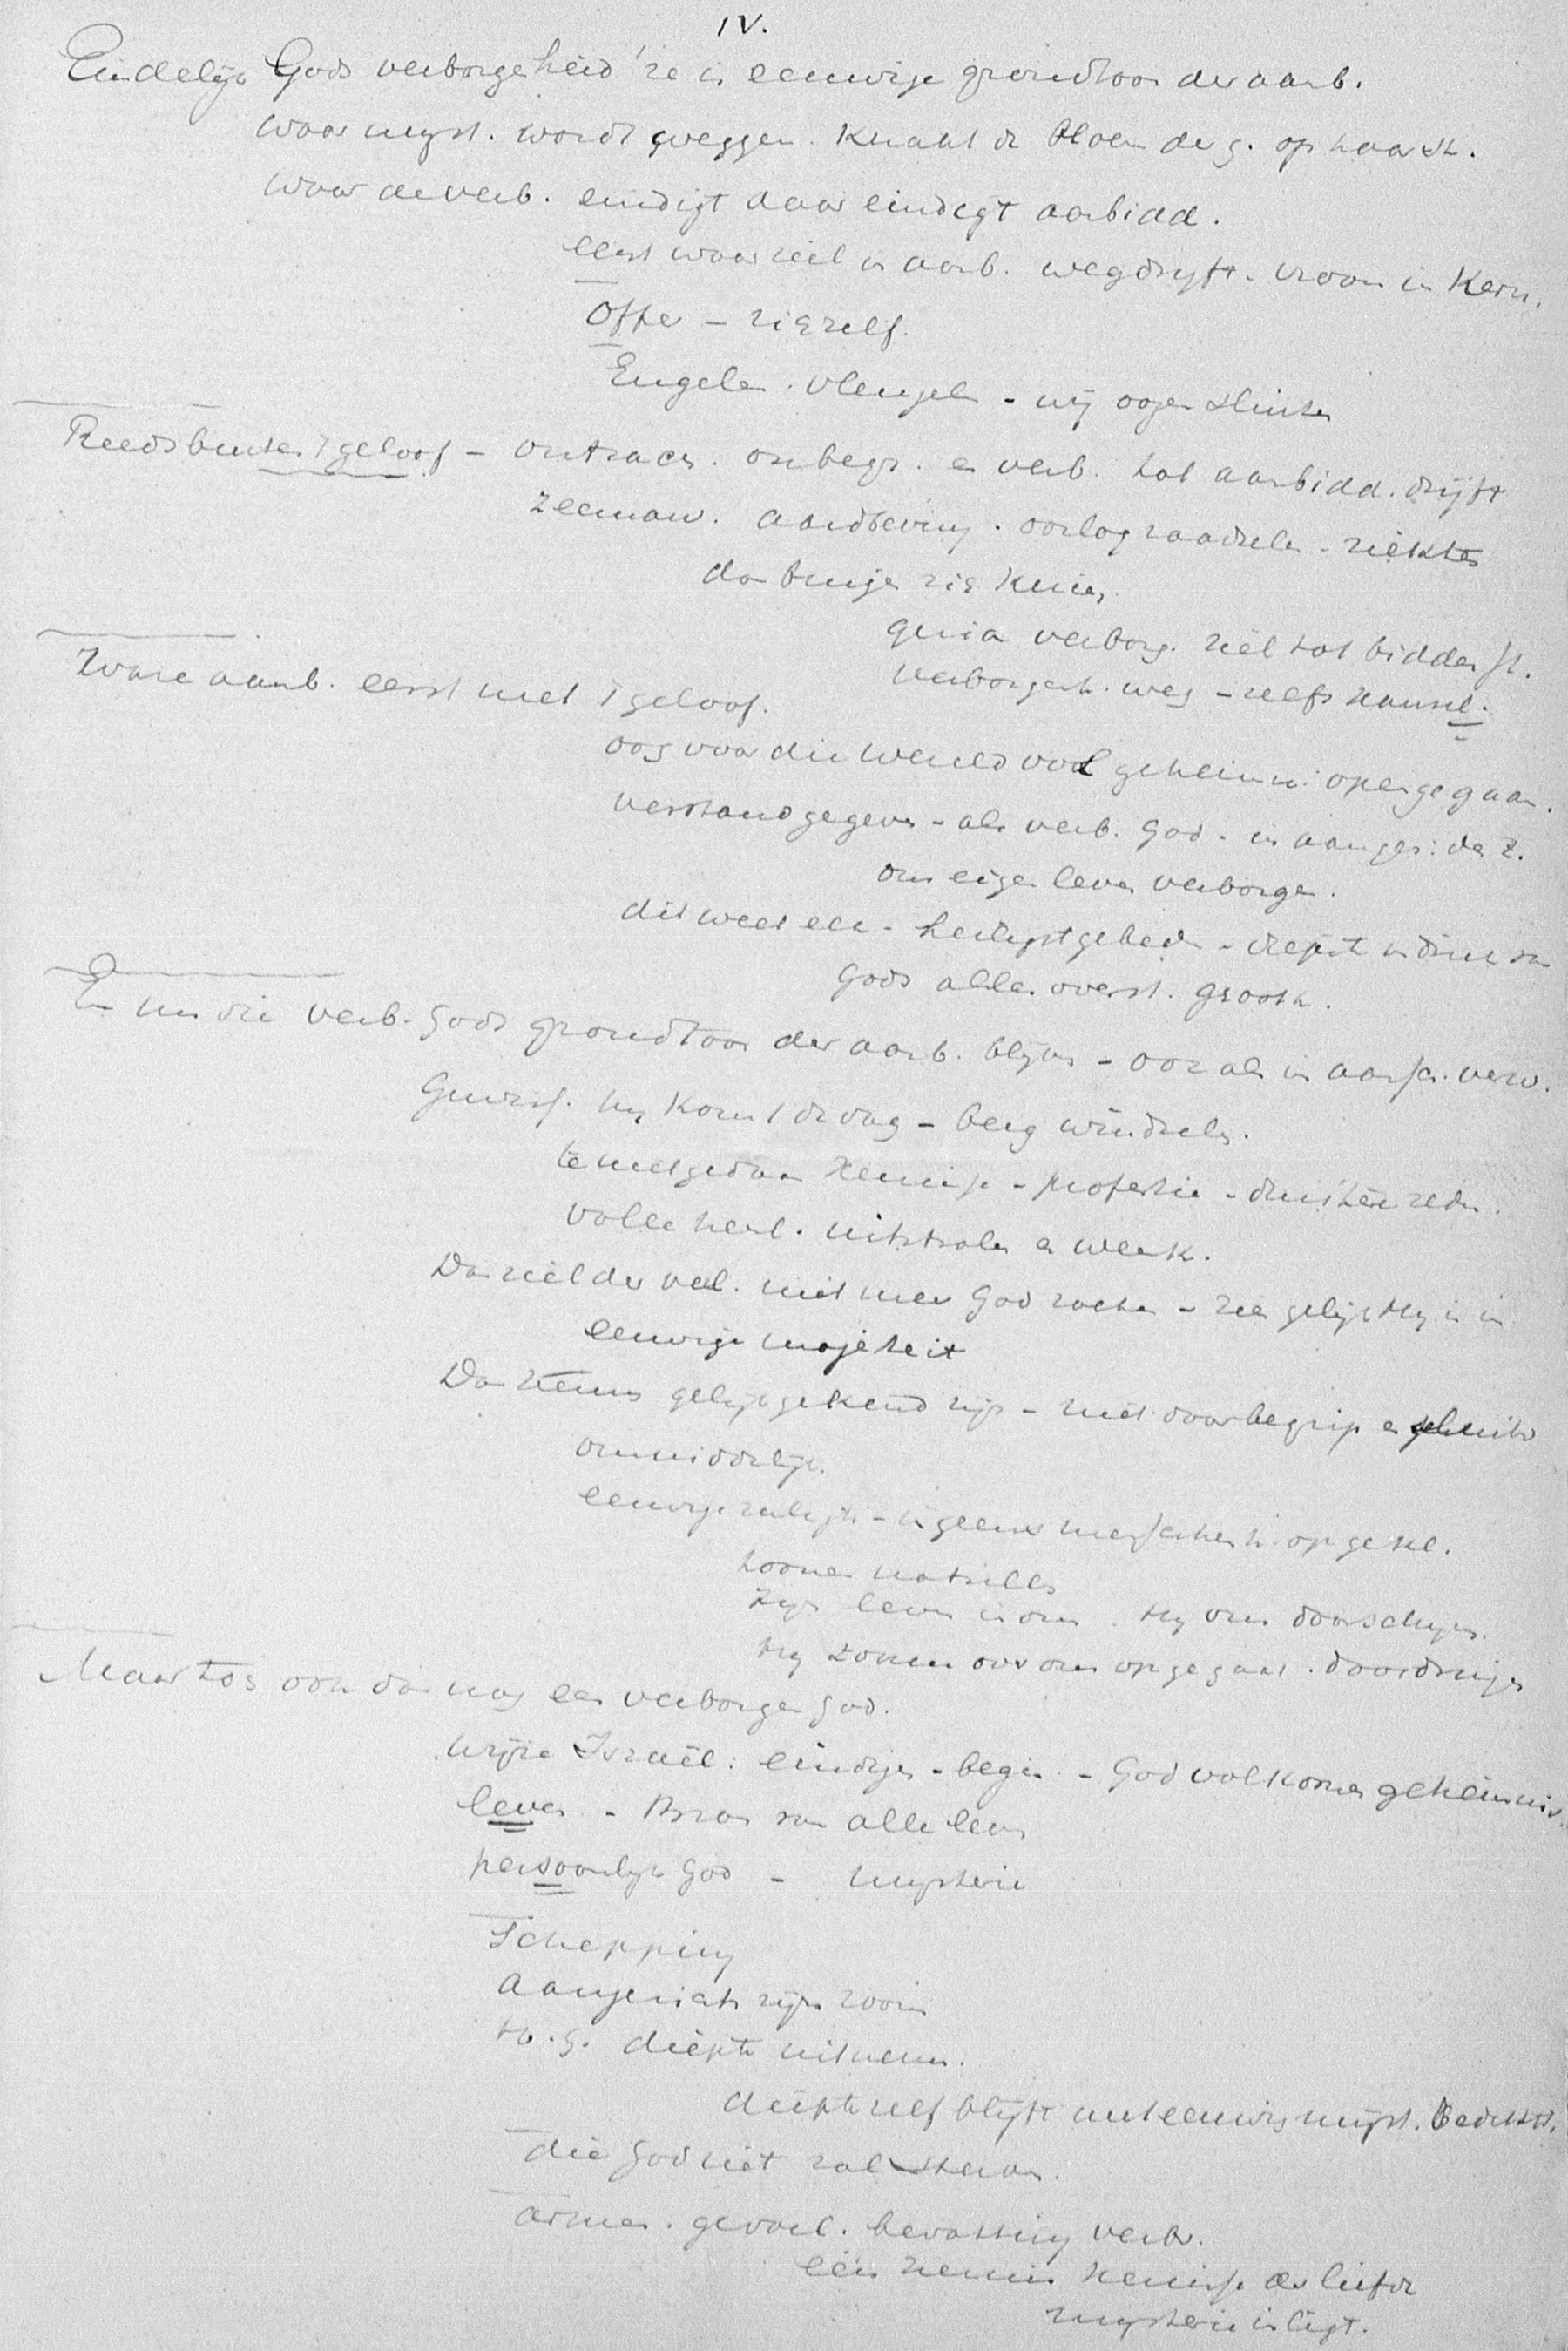 IV.
Eindelijk Gods verborgeheid 'ze is eeuwige grondtoon der aanb.
waar myst. wordt weggen. knakt de bloem der g. op haar st.
waar de verb. eindigt daar eindigt aanbidd.
eerst waar ziel in aanb. wegdrijft - vroom in kern.
Offer - zigzelf.
Engelen . vleugels - wij oogen sluiten
Reeds buiten 't geloof - ontzach. onbegr. en verb. tot aanbidd. drijft
Zeeman. aardbeving . oorlog raadsels - ziektes
dan buige zig knien
genia verborg. ziel tot bidden st.
Verborgenh. weg - zelfs kansel.
Ware aanb. eerst met 't geloof.
oog voor die wereld vol geheimn: opengegaan.
verstand gegeven - als verb. God - in aanges: des Z.
ons eigen leven verborgen.
dit weet elk - heiligst gebed - diepste indruk van
Gods alles overst. grooth.
En nu die verb. Gods grondtoon der aanb. blijven - ook als in aansch. verw.
Gewis. hij komt de dag - berg windselen.
te niet gedaan kennisse - profetie - duistere reden.
Volle heerl. uitstralen en werk.
Dan ziel der verl. niet meer God zoeken - zien gelijk Hij is in
eeuwige majesteit
Dan kennen gelijk gekend zijn - niet door begrip en
onmiddelijk.
eeuwige zaligh - in geens menschen h. opgekl.
Zijn leven in ons . Hij ons doorschijn.
Hij zonne over ons opgegaan . doordringen
Maar tog ook dan nog een verborgen God.
Wijze Israël: eindige - begin - God volkomen geheimnis.
leven - Bron van alle leven
persoonlijk God - mysterie
Schepping
Aangezicht zijns zoons
H. G. diepte uitnem.
diepte zelf blijft met eeuwig myst. bedekt.
die God ziet zal sterven.
armen . gevoel . bevatting verb.
één kennis kennisse der liefde
mysterie in ligt.